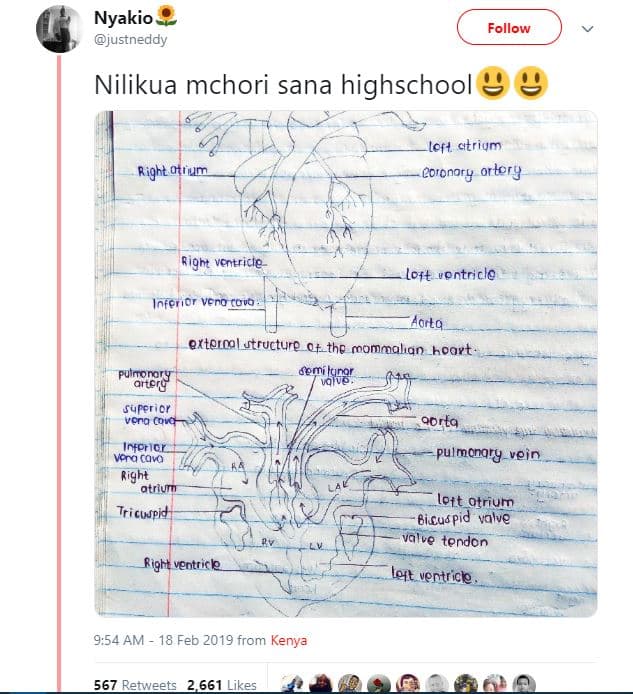 Nyakio🌻
@justneddy
Follow
Nilikua mchori sana highschool😃😃
Right atrium
left atrium
coronary artery
Right ventricle
left ventricle
Inferior vena cava.
Aorta
external structure of the mammalian heart.
pulmonary
artery
semilunar
valve.
superior
vena cava
aorta
Inferior
vena cava
pulmonary vein
Right
atrium
RA
LA
left atrium
Tricuspid
Bicuspid valve
valve tendon
RV
LV
Right ventricle
left ventricle.
9:54 AM - 18 Feb 2019 from Kenya
567 Retweets 2,661 Likes